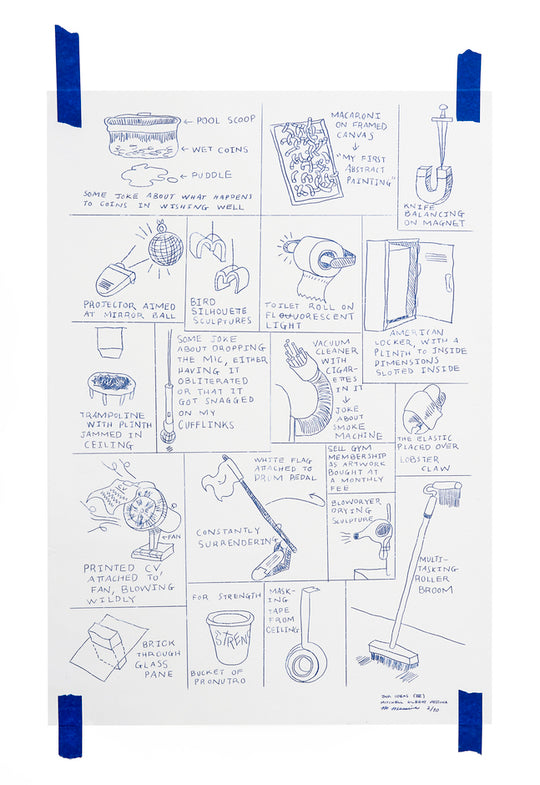 ← POOL SCOOP
← WET COINS
← PUDDLE
SOME JOKE ABOUT WHAT HAPPENS
TO COINS IN WISHING WELL
MACARONI
ON FRAMED
CANVAS
↓
"MY FIRST
ABSTRACT
PAINTING"
KNIFE
BALANCING
ON MAGNET
PROJECTOR AIMED
AT MIRROR BALL
BIRD
SILHOUETTE
SCULPTURES
TOILET ROLL ON
FLOUORESCENT
LIGHT
AMERICAN
LOCKER, WITH A
PLINTH TO INSIDE
DIMENSIONS
SLOTTED INSIDE
TRAMPOLINE
WITH PLINTH
JAMMED IN
CEILING
SOME JOKE
ABOUT DROPPING
THE MIC, EITHER
HAVING IT
OBLITERATED
OR THAT IT
GOT SNAGGED
ON MY
CUFFLINKS
VACUUM
CLEANER
WITH
CIGAR-
ETTES
IN IT
↓
JOKE
ABOUT
SMOKE
MACHINE
THE ELASTIC
PLACED OVER
LOBSTER
CLAW
CV
← FAN
PRINTED CV,
ATTACHED TO
FAN, BLOWING
WILDLY
WHITE FLAG
ATTACHED TO
DRUM PEDAL
CONSTANTLY
SURRENDERING
SELL GYM
MEMBERSHIP
AS ARTWORK
BOUGHT AT
A MONTHLY
FEE
BLOWDRYER
DRYING
SCULPTURE
MULTI-
TASKING
ROLLER
BROOM
BRICK
THROUGH
GLASS
PANE
FOR STRENGTH
STREN
BUCKET OF
PRONUTRO
MASK-
ING
TAPE
FROM
CEILING
IDEAS
MITCHELL GILBERT
2/30